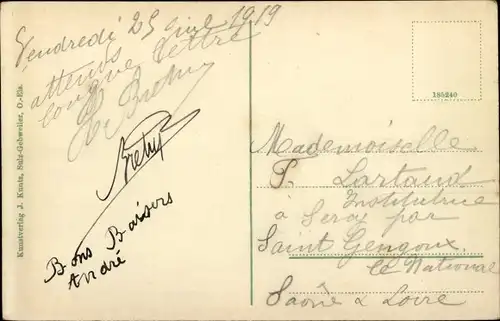 Vendredi 25 1919
attends
longue lettre
Bons Baisers
André
Kunstverlag J. Kuntz, Sulz-Gebweiler, O.-Els.
185240
Mademoiselle
P. Lartaud
Institutrice
à par
Saint Gengoux
le National
Saône & Loire